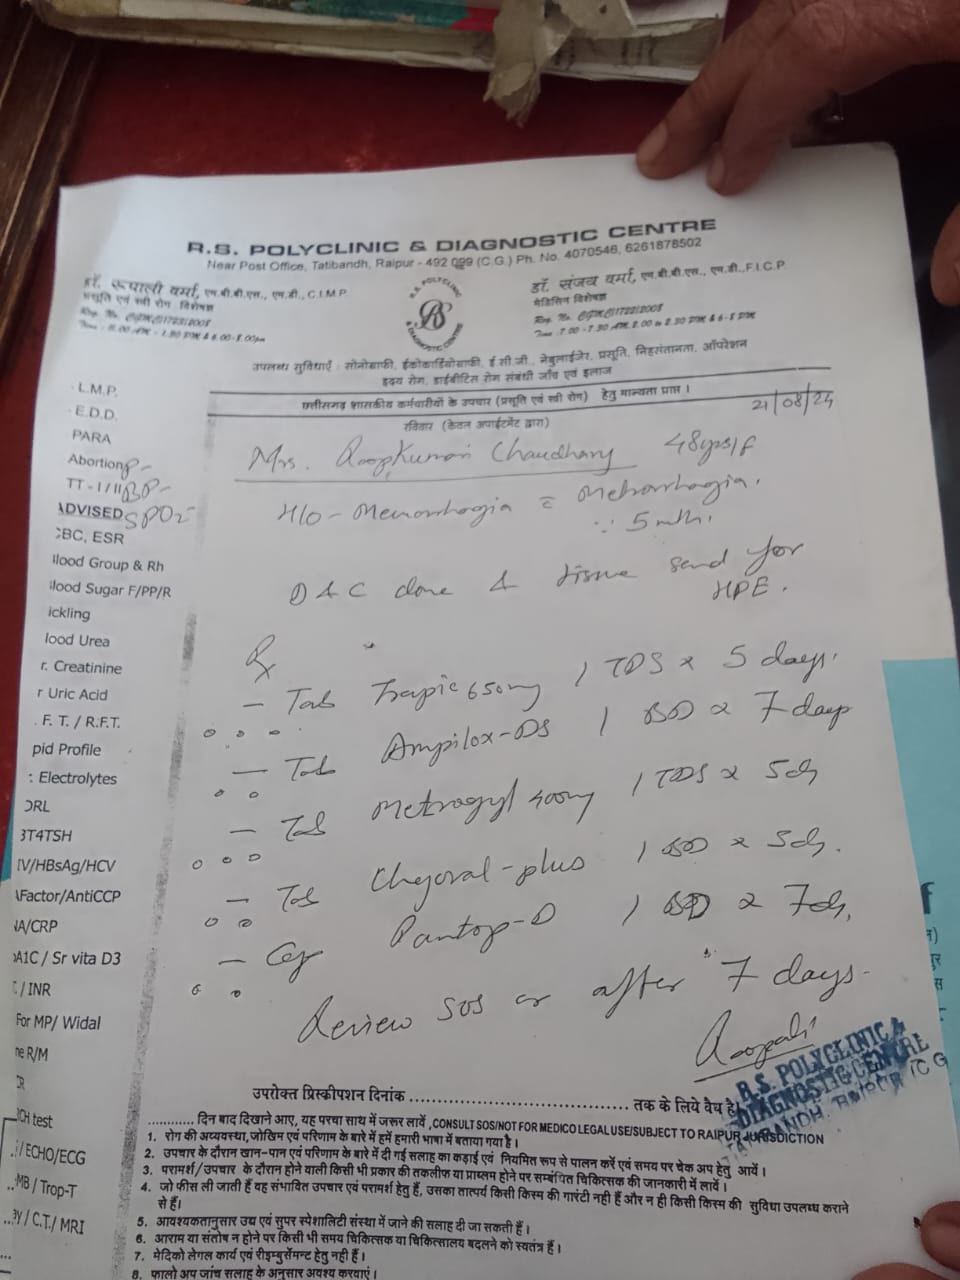 R.S. POLYCLINIC & DIAGNOSTIC CENTRE
Near Post Office, Tatibandh, Raipur - 492 099 (C.G.) Ph. No. 4070546, 6261878502
डॉ. रूपाली वर्मा, एम.बी.बी.एस., एम.डी., C.I.M.P.
प्रसूति एवं स्त्री रोग विशेषज्ञ
डॉ. संजय वर्मा, एम.बी.बी.एस., एम.डी., F.I.C.P.
मेडिसिन विशेषज्ञ
R.S. POLYCLINIC
& DIAGNOSTIC CENTRE
उपलब्ध सुविधाएँ : सोनोग्राफी, ईकोकार्डियोग्राफी, ई.सी.जी., नेबुलाईजेर, प्रसूति, निहसंतानता, ऑपरेशन
हृदय रोग, डाईबीटिस रोग संबंधी जाँच एवं इलाज
छत्तीसगढ़ शासकीय कर्मचारीयों के उपचार (प्रसूति एवं स्त्री रोग) हेतु मान्यता प्राप्त ।
रविवार (केवल अपाईंटमेंट द्वारा)
21/08/24
Mrs. Roopkumari Chaudhary 48yrs/f
H/O - Menorrhagia = Metrorrhagia.
∵ 5 mth.
D & C done & tissue send for
HPE.
Rx
- Tab Trapic 650mg 1 TDS x 5 days.
- Tab Ampilox-DS 1 BD x 7 days
- Tab Metrogyl 400mg 1 TDS x 5d
- Tab Chymoral-plus 1 BD x 5d.
- Cap Pantop-D 1 BD x 7d.
Review SOS or after 7 days.
Roopali
L.M.P.
E.D.D.
PARA
Abortion P-
TT - I / II BP-
ADVISED SPO2-
CBC, ESR
lood Group & Rh
lood Sugar F/PP/R
ickling
lood Urea
r. Creatinine
r Uric Acid
. F. T. / R.F.T.
pid Profile
: Electrolytes
DRL
3T4TSH
IV/HBsAg/HCV
Factor/AntiCCP
A/CRP
A1C / Sr vita D3
/ INR
For MP/ Widal
ne R/M
CR
RCH test
/ ECHO/ECG
MB / Trop-T
ay / C.T./ MRI
R.S. POLYCLINIC &
DIAGNOSTIC CENTRE
TATIBANDH, RAIPUR (C.G
उपरोक्त प्रिस्क्रीपशन दिनांक .................................... तक के लिये वैध है।
............ दिन बाद दिखाने आए, यह परचा साथ में जरूर लावें ,CONSULT SOS/NOT FOR MEDICO LEGAL USE/SUBJECT TO RAIPUR JURISDICTION
1. रोग की अव्यवस्था,जोखिम एवं परिणाम के बारे में हमें हमारी भाषा में बताया गया है।
2. उपचार के दौरान खान-पान एवं परिणाम के बारे में दी गई सलाह का कड़ाई एवं नियमित रूप से पालन करें एवं समय पर चेक अप हेतु आयें।
3. परामर्श/उपचार के दौरान होने वाली किसी भी प्रकार की तकलीफ या प्राब्लम होने पर सम्बंधित चिकित्सक की जानकारी में लावें।
4. जो फीस ली जाती हैं वह संभावित उपचार एवं परामर्श हेतु हैं, उसका तात्पर्य किसी किस्म की गारंटी नही हैं और न ही किसी किस्म की सुविधा उपलब्ध कराने
से हैं।
5. आवश्यकतानुसार उच्च एवं सुपर स्पेशालिटी संस्था में जाने की सलाह दी जा सकती हैं।
6. आराम या संतोष न होने पर किसी भी समय चिकित्सक या चिकित्सालय बदलने को स्वतंत्र हैं।
7. मेदिको लेगल कार्य एवं रीइम्बुर्समेन्ट हेतु नही हैं।
8. फालो अप जांच सलाह के अनुसार अवश्य करवाएं।